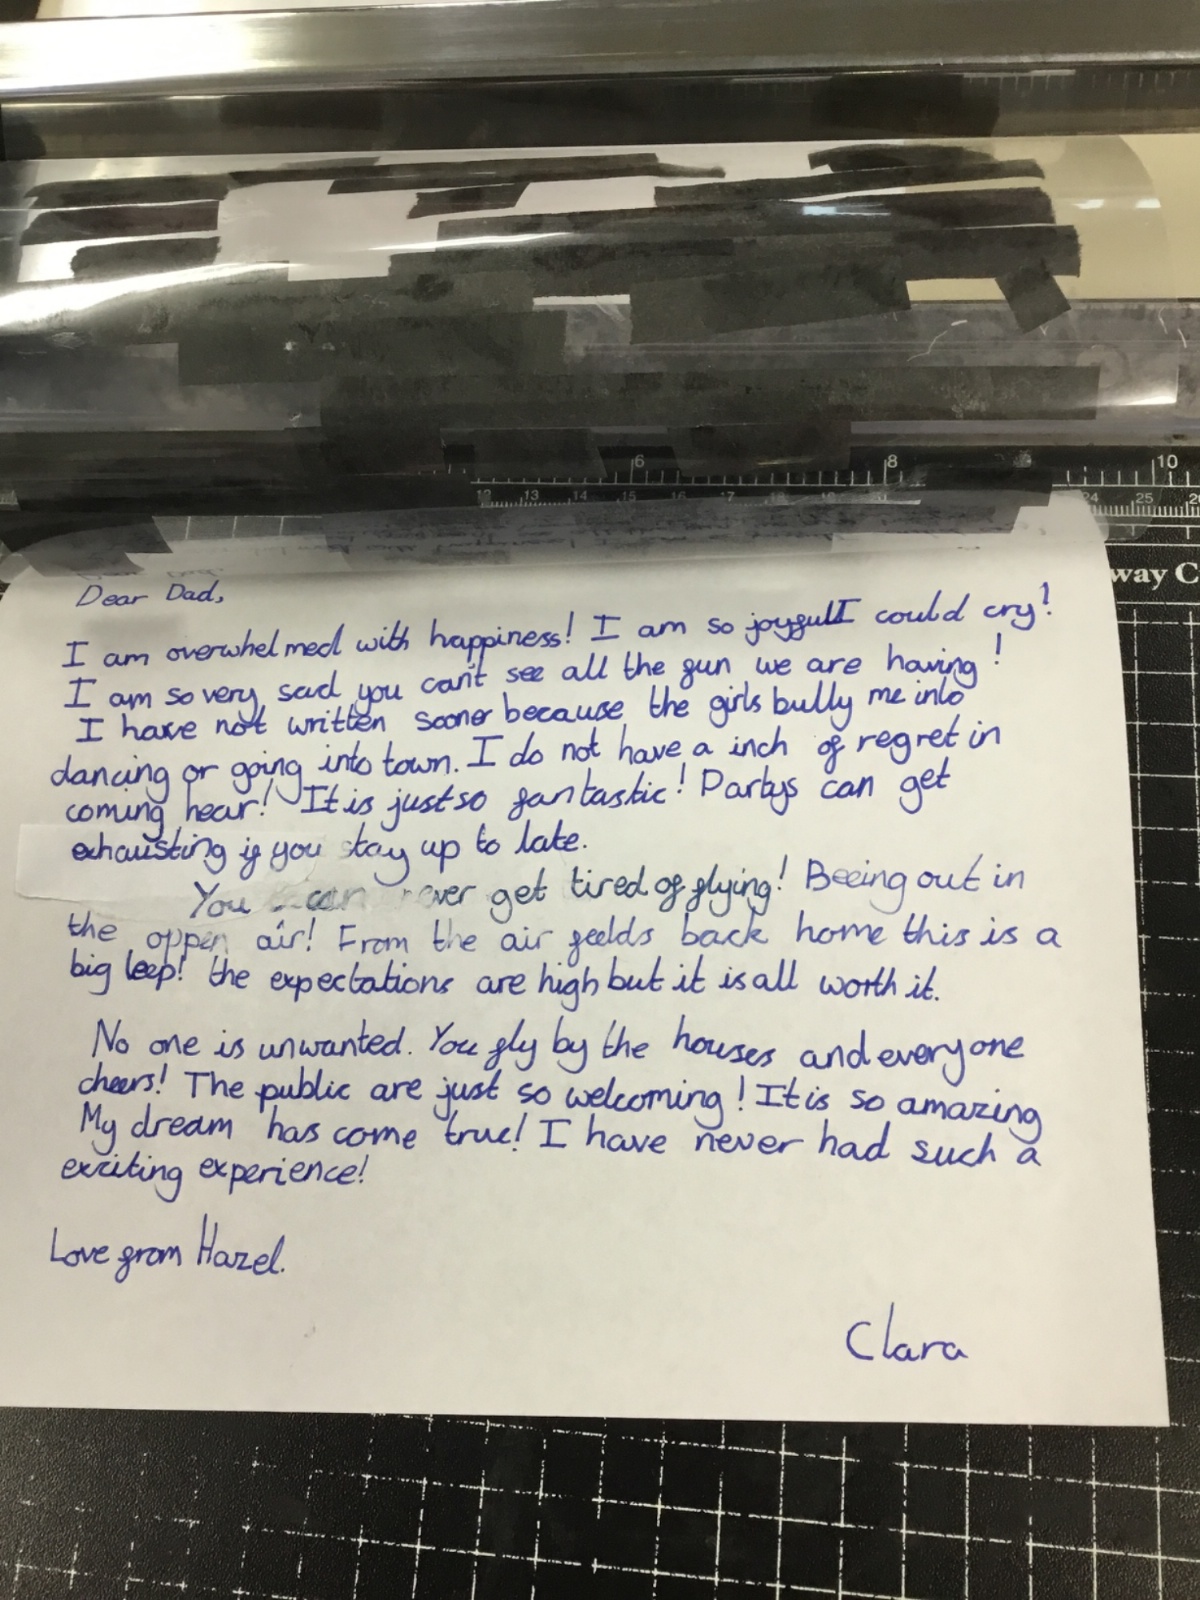 6 8 10
12 13 14 15 16 17 18 19 24 25
way C
Dear Dad,
I am overwhelmed with happiness! I am so joyfull I could cry!
I am so very sad you can't see all the fun we are having!
I have not written sooner because the girls bully me into
dancing or going into town. I do not have a inch of regret in
coming hear! It is just so fantastic! Partys can get
exhausting if you stay up to late.
You can never get tired of flying! Beeing out in
the oppen air! From the air feelds back home this is a
big leep! the expectations are high but it is all worth it.
No one is unwanted. You fly by the houses and everyone
cheers! The public are just so welcoming! It is so amazing
My dream has come true! I have never had such a
exciting experience!
Love from Hazel.
Clara